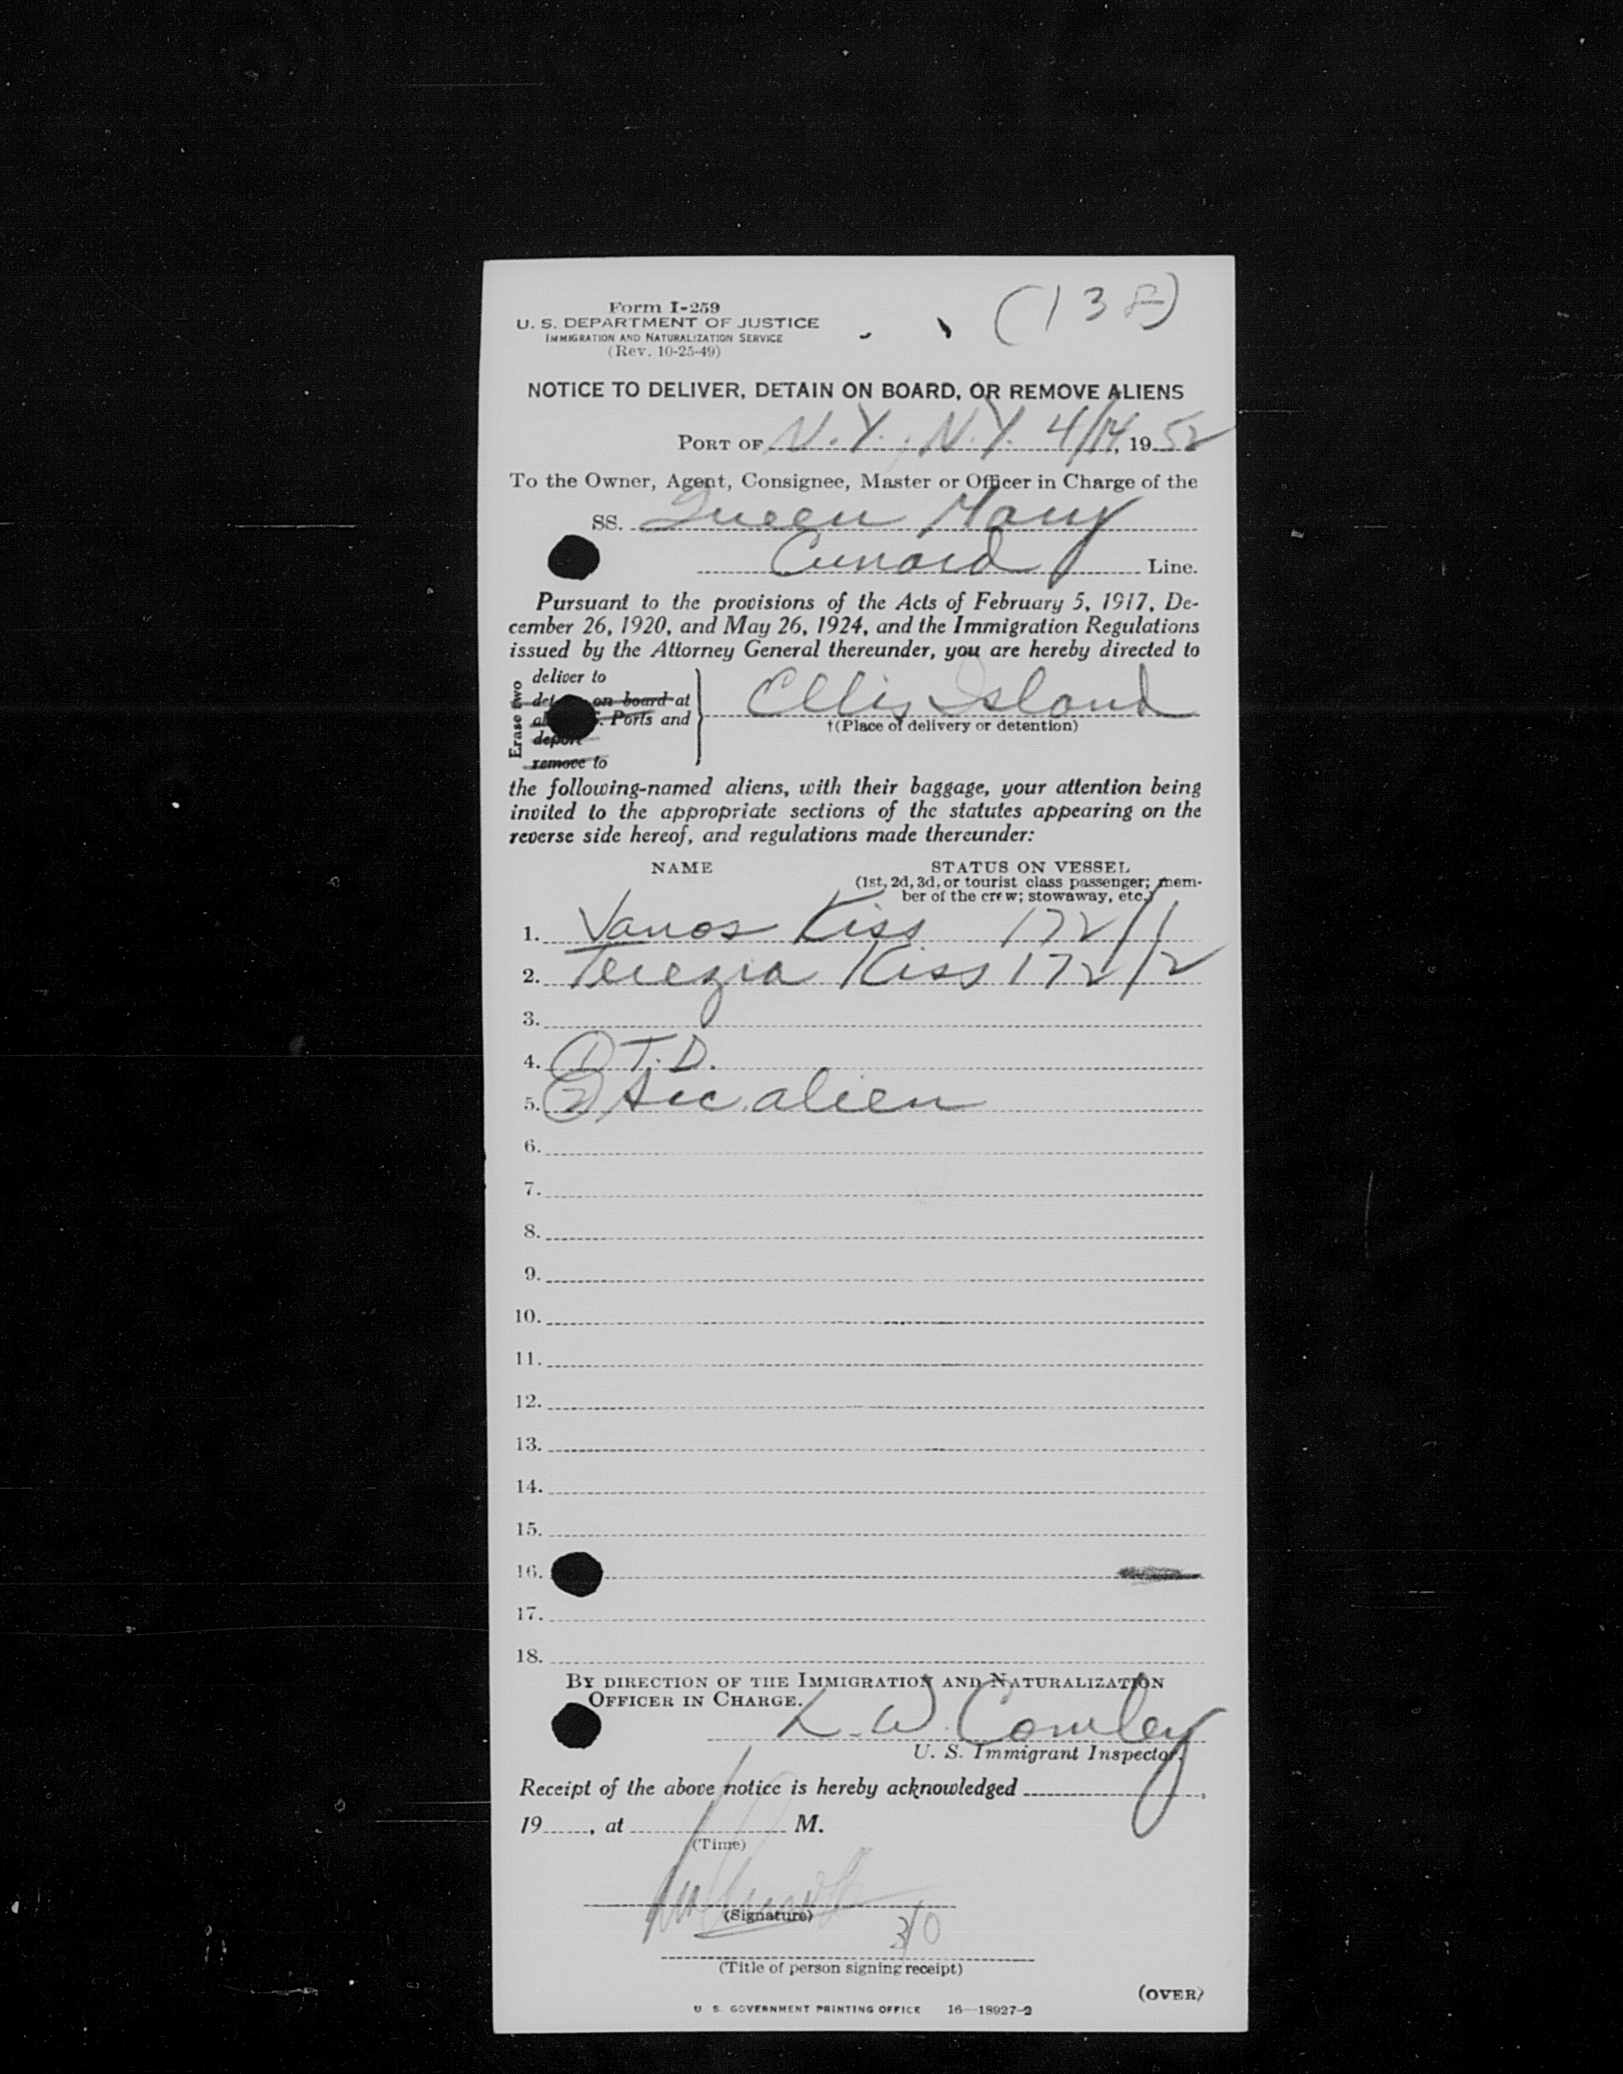 (138)
Form I-259
U. S. DEPARTMENT OF JUSTICE
IMMIGRATION AND NATURALIZATION SERVICE
(Rev. 10-25-49)
NOTICE TO DELIVER, DETAIN ON BOARD, OR REMOVE ALIENS
PORT OF N.Y., N.Y. 4/14, 1952
To the Owner, Agent, Consignee, Master or Officer in Charge of the
SS. Queen Mary
Cunard Line.
Pursuant to the provisions of the Acts of February 5, 1917, De-
cember 26, 1920, and May 26, 1924, and the Immigration Regulations
issued by the Attorney General thereunder, you are hereby directed to
Erase two
deliver to
on board at
Ports and
deport
remove to
Ellis Island
†(Place of delivery or detention)
the following-named aliens, with their baggage, your attention being
invited to the appropriate sections of the statutes appearing on the
reverse side hereof, and regulations made thereunder:
NAME STATUS ON VESSEL
(1st, 2d, 3d, or tourist class passenger; mem-
ber of the crew; stowaway, etc.)
1. Janos Kiss 172/1
2. Terezia Kiss 172/2
3.
4. (1) T.D.
5. (2) Acc. alien
6.
7.
8.
9.
10.
11.
12.
13.
14.
15.
16.
17.
18.
BY DIRECTION OF THE IMMIGRATION AND NATURALIZATION
OFFICER IN CHARGE.
L. W. Cowley
U. S. Immigrant Inspector.
Receipt of the above notice is hereby acknowledged ,
19 , at M.
(Time)
(Signature)
310
(Title of person signing receipt)
(OVER)
U. S. GOVERNMENT PRINTING OFFICE 16—18927-2